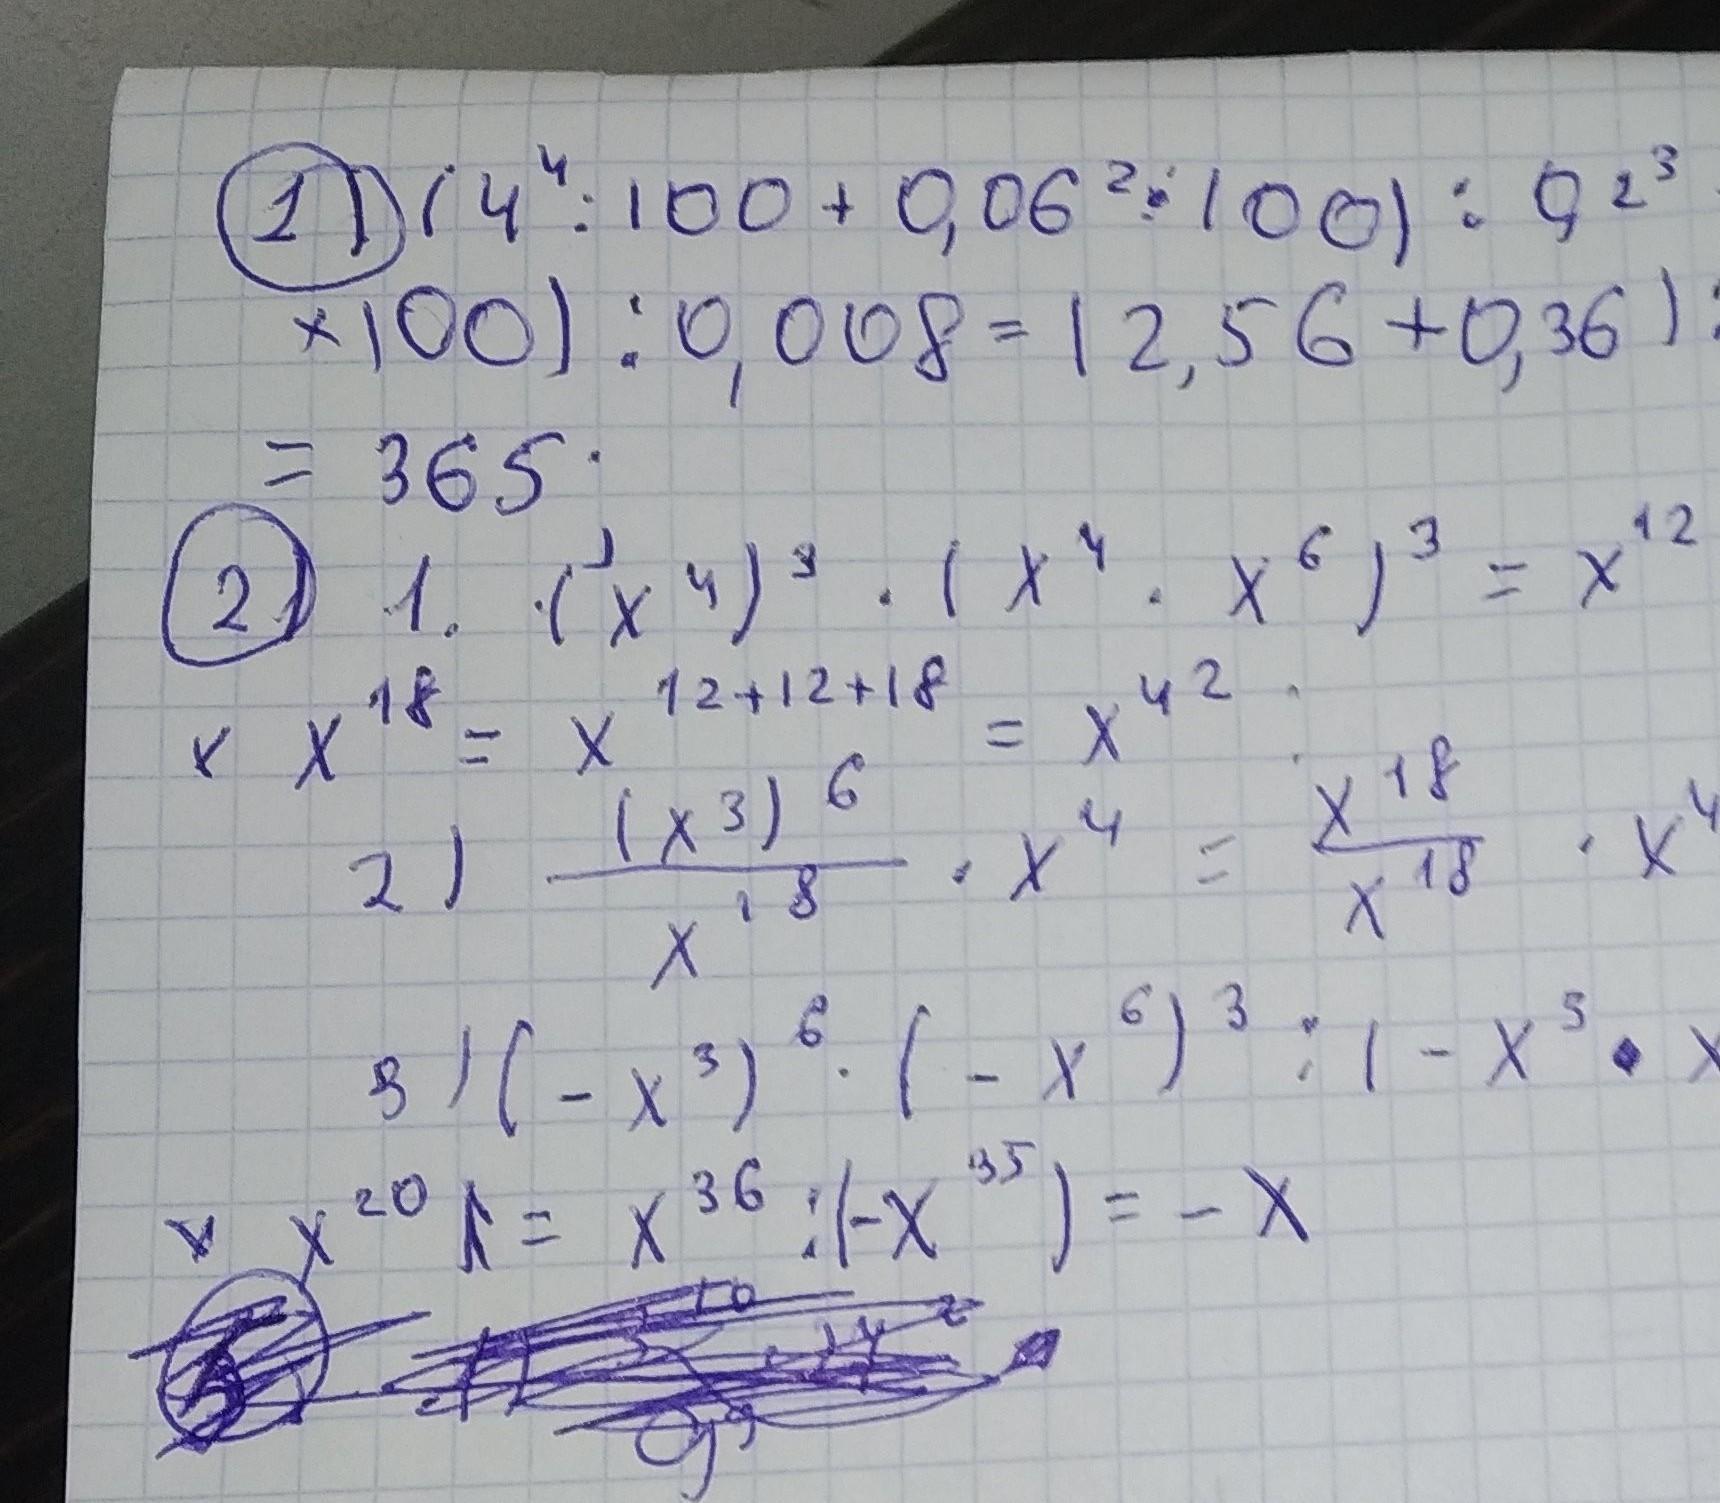 1) (4⁴:100+0,06²:100):0,2³
×100):0,008=(2,56+0,36):
=365.
2) 1. (x⁴)³·(x⁴·x⁶)³=x¹²
× x¹⁸=x¹²⁺¹²⁺¹⁸=x⁴²
2) (x³)⁶/x¹⁸·x⁴=x¹⁸/x¹⁸·x⁴
3)(-x³)⁶·(-x⁶)³:(-x⁵·x
× x²⁰)=x³⁶:(-x³⁵)=-x